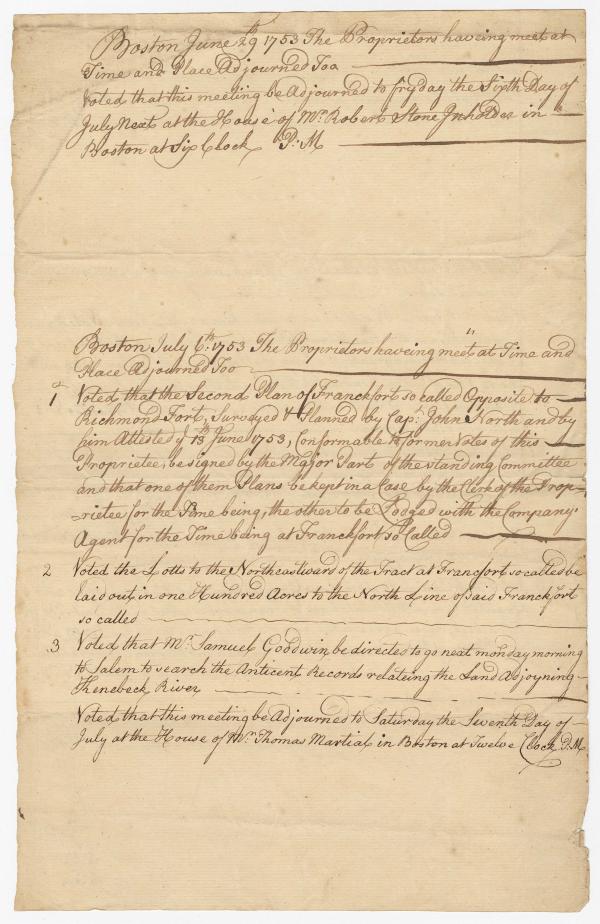 Boston June 29th 1753 The Proprietors haveing meet at
Time and Place Adjourned Too
Voted that this meeting be Adjourned to fryday the Sixth Day of
July Next at the House of Mr Robert Stone Inholder in
Boston at Six Clock P:M
Boston July 6th: 1753 The Proprietors haveing meet at Time and
Place Adjourned Too
1st Voted that the Second Plan of Franckfort so called Opposite to
Richmond Fort, Surveyed & Planned by Capt: John North and by
him Attested ye 13th June 1753, Conformable to former Votes of this
Proprietee, be signed by the Major Part of the standing Committee
and that one of them Plans be kept in a Case by the Clerk of the Prop-
=rietee for the Time being, the other to be Lodged with the Company's
Agent for the Time being at Franckfort so Called
2 Voted the Lotts to the Northeastward of the Tract at Francfort so called be
laid out in one Hundred Acres to the North Line of said Franckfort
so called
.3 Voted that Mr Samuel Goodwin be directed to go next monday morning
to Salem to search the Anticent Records relateing the Land Adjoyning
Kenebeck River
Voted that this meeting be Adjourned to Saturday the Seventh Day of
July at the House of Mr Thomas Martial in Boston at Twelve Clock P.M